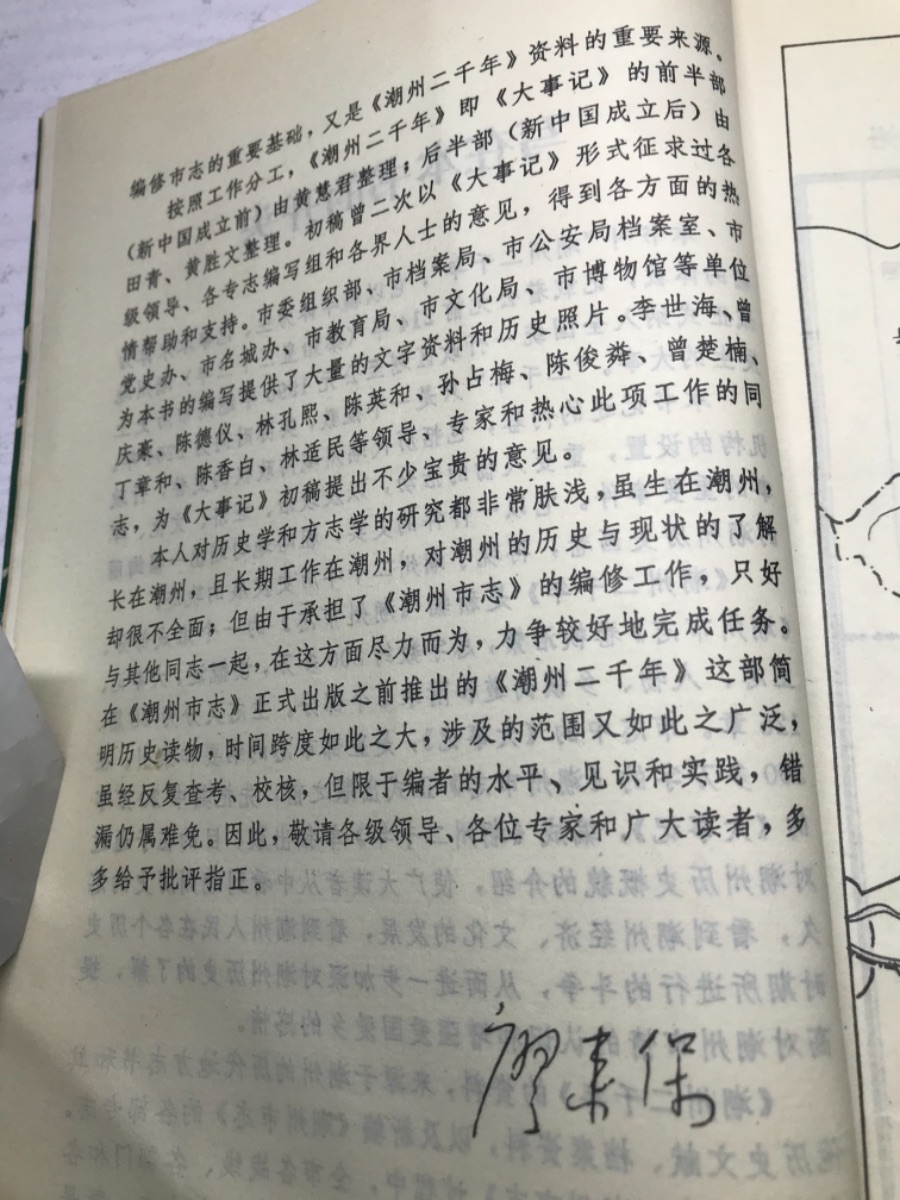 编修市志的重要基础，又是《潮州二千年》资料的重要来源。
按照工作分工，《潮州二千年》即《大事记》的前半部
（新中国成立前）由黄慧君整理；后半部（新中国成立后）由
田青、黄胜文整理。初稿曾二次以《大事记》形式征求过各
级领导、各专志编写组和各界人士的意见，得到各方面的热
情帮助和支持。市委组织部、市档案局、市公安局档案室、市
党史办、市名城办、市教育局、市文化局、市博物馆等单位
为本书的编写提供了大量的文字资料和历史照片。李世海、曾
庆豪、陈德仪、林孔熙、陈英和、孙占梅、陈俊粦、曾楚楠、
丁章和、陈香白、林适民等领导、专家和热心此项工作的同
志，为《大事记》初稿提出不少宝贵的意见。
本人对历史学和方志学的研究都非常肤浅，虽生在潮州，
长在潮州，且长期工作在潮州，对潮州的历史与现状的了解
却很不全面；但由于承担了《潮州市志》的编修工作，只好
与其他同志一起，在这方面尽力而为，力争较好地完成任务。
在《潮州市志》正式出版之前推出的《潮州二千年》这部简
明历史读物，时间跨度如此之大，涉及的范围又如此之广泛，
虽经反复查考、校核，但限于编者的水平、见识和实践，错
漏仍属难免。因此，敬请各级领导、各位专家和广大读者，多
多给予批评指正。